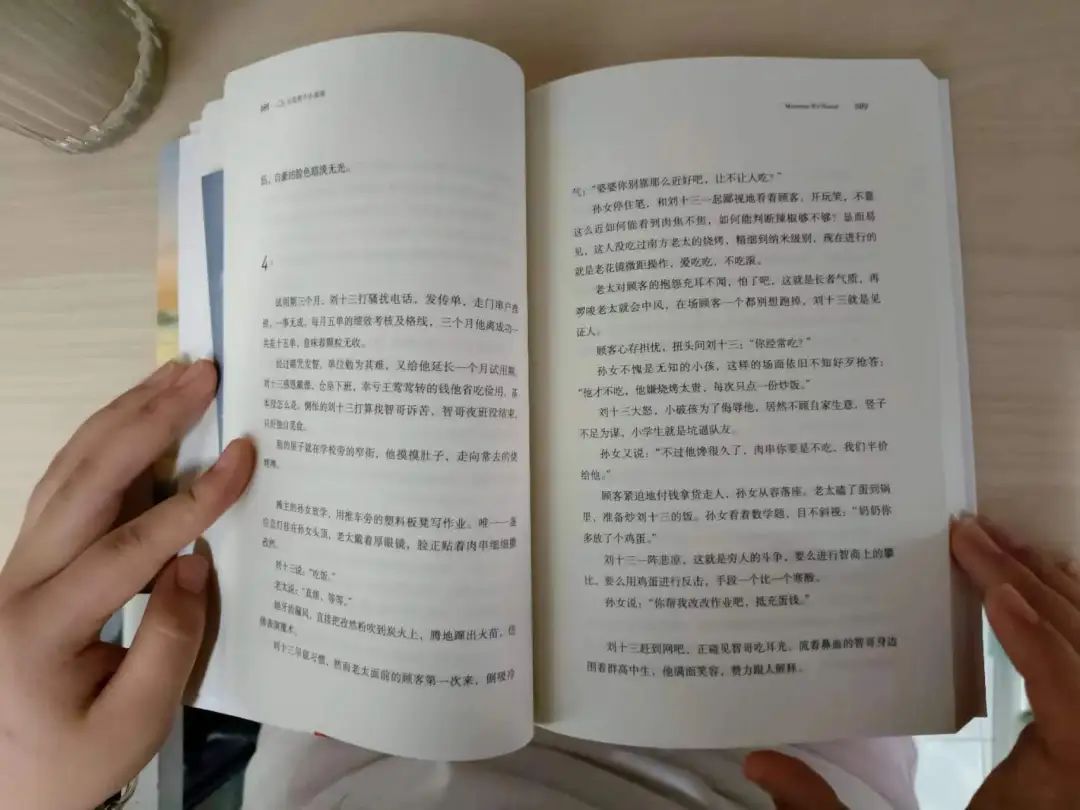 低，自豪的脸色暗淡无光。
4
试用期三个月，刘十三打骚扰电话，发传单，走门串户查
班，一事无成。每月五单的绩效考核及格线，三个月他离成功一
共差十五单，意味着颗粒无收。
经过 单位勉为其难，又给他延长一个月试用期。
刘十三感恩戴德，台坐下班，幸亏王莺莺转的钱他省吃俭用，基
本没怎么花。惆怅的刘十三打算找智哥诉苦，智哥夜班没结束，
只好独自觅食。
租的屋子就在学校旁的窄街，他摸摸肚子，走向常去的烧
烤摊。
摊主的孙女放学，用推车旁的塑料板凳写作业。唯一一盏
白炽灯挂在孙女头顶，老太戴着厚眼镜，脸正贴着肉串细细撒
孜然。
刘十三说：“吃饭。”
老太说：“真烦，等等。”
她牙齿漏风，直接把孜然粉吹到炭火上，腾地蹿出火苗，仿
佛表演魔术。
刘十三早就习惯，然而老太面前的顾客第一次来，倒吸冷
109
气：“婆婆你别靠那么近好吧，让不让人吃？”
孙女停住笔，和刘十三一起鄙视地看着顾客。开玩笑，不靠
这么近如何能看到肉焦不焦，如何能判断辣椒够不够？显而易
见，这人没吃过南方老太的烧烤，精细到纳米级别，现在进行的
就是老花镜微距操作，爱吃吃，不吃滚。
老太对顾客的抱怨充耳不闻，怕了吧，这就是长者气质，再
啰唆老太就会中风，在场顾客一个都别想跑掉，刘十三就是见
证人。
顾客心存担忧，扭头问刘十三：“你经常吃？”
孙女不愧是无知的小孩，这样的场面依旧不知好歹抢答：
“他才不吃，他嫌烧烤太贵，每次只点一份炒饭。”
刘十三大怒，小破孩为了侮辱他，居然不顾自家生意，竖子
不足为谋，小学生就是坑逼队友。
孙女又说：“不过他馋很久了，肉串你要是不吃，我们半价
给他。”
顾客紧迫地付钱拿货走人，孙女从容落座。老太磕了蛋到锅
里，准备炒刘十三的饭。孙女看着数学题，目不斜视：“奶奶你
多放了个鸡蛋。”
刘十三一阵悲凉，这就是穷人的斗争，要么进行智商上的攀
比，要么用鸡蛋进行反击，手段一个比一个寒酸。
孙女说：“你帮我改改作业吧，抵充蛋钱。”
刘十三赶到网吧，正碰见智哥吃耳光。流着鼻血的智哥身边
围着群高中生，他满面笑容，费力跟人解释。